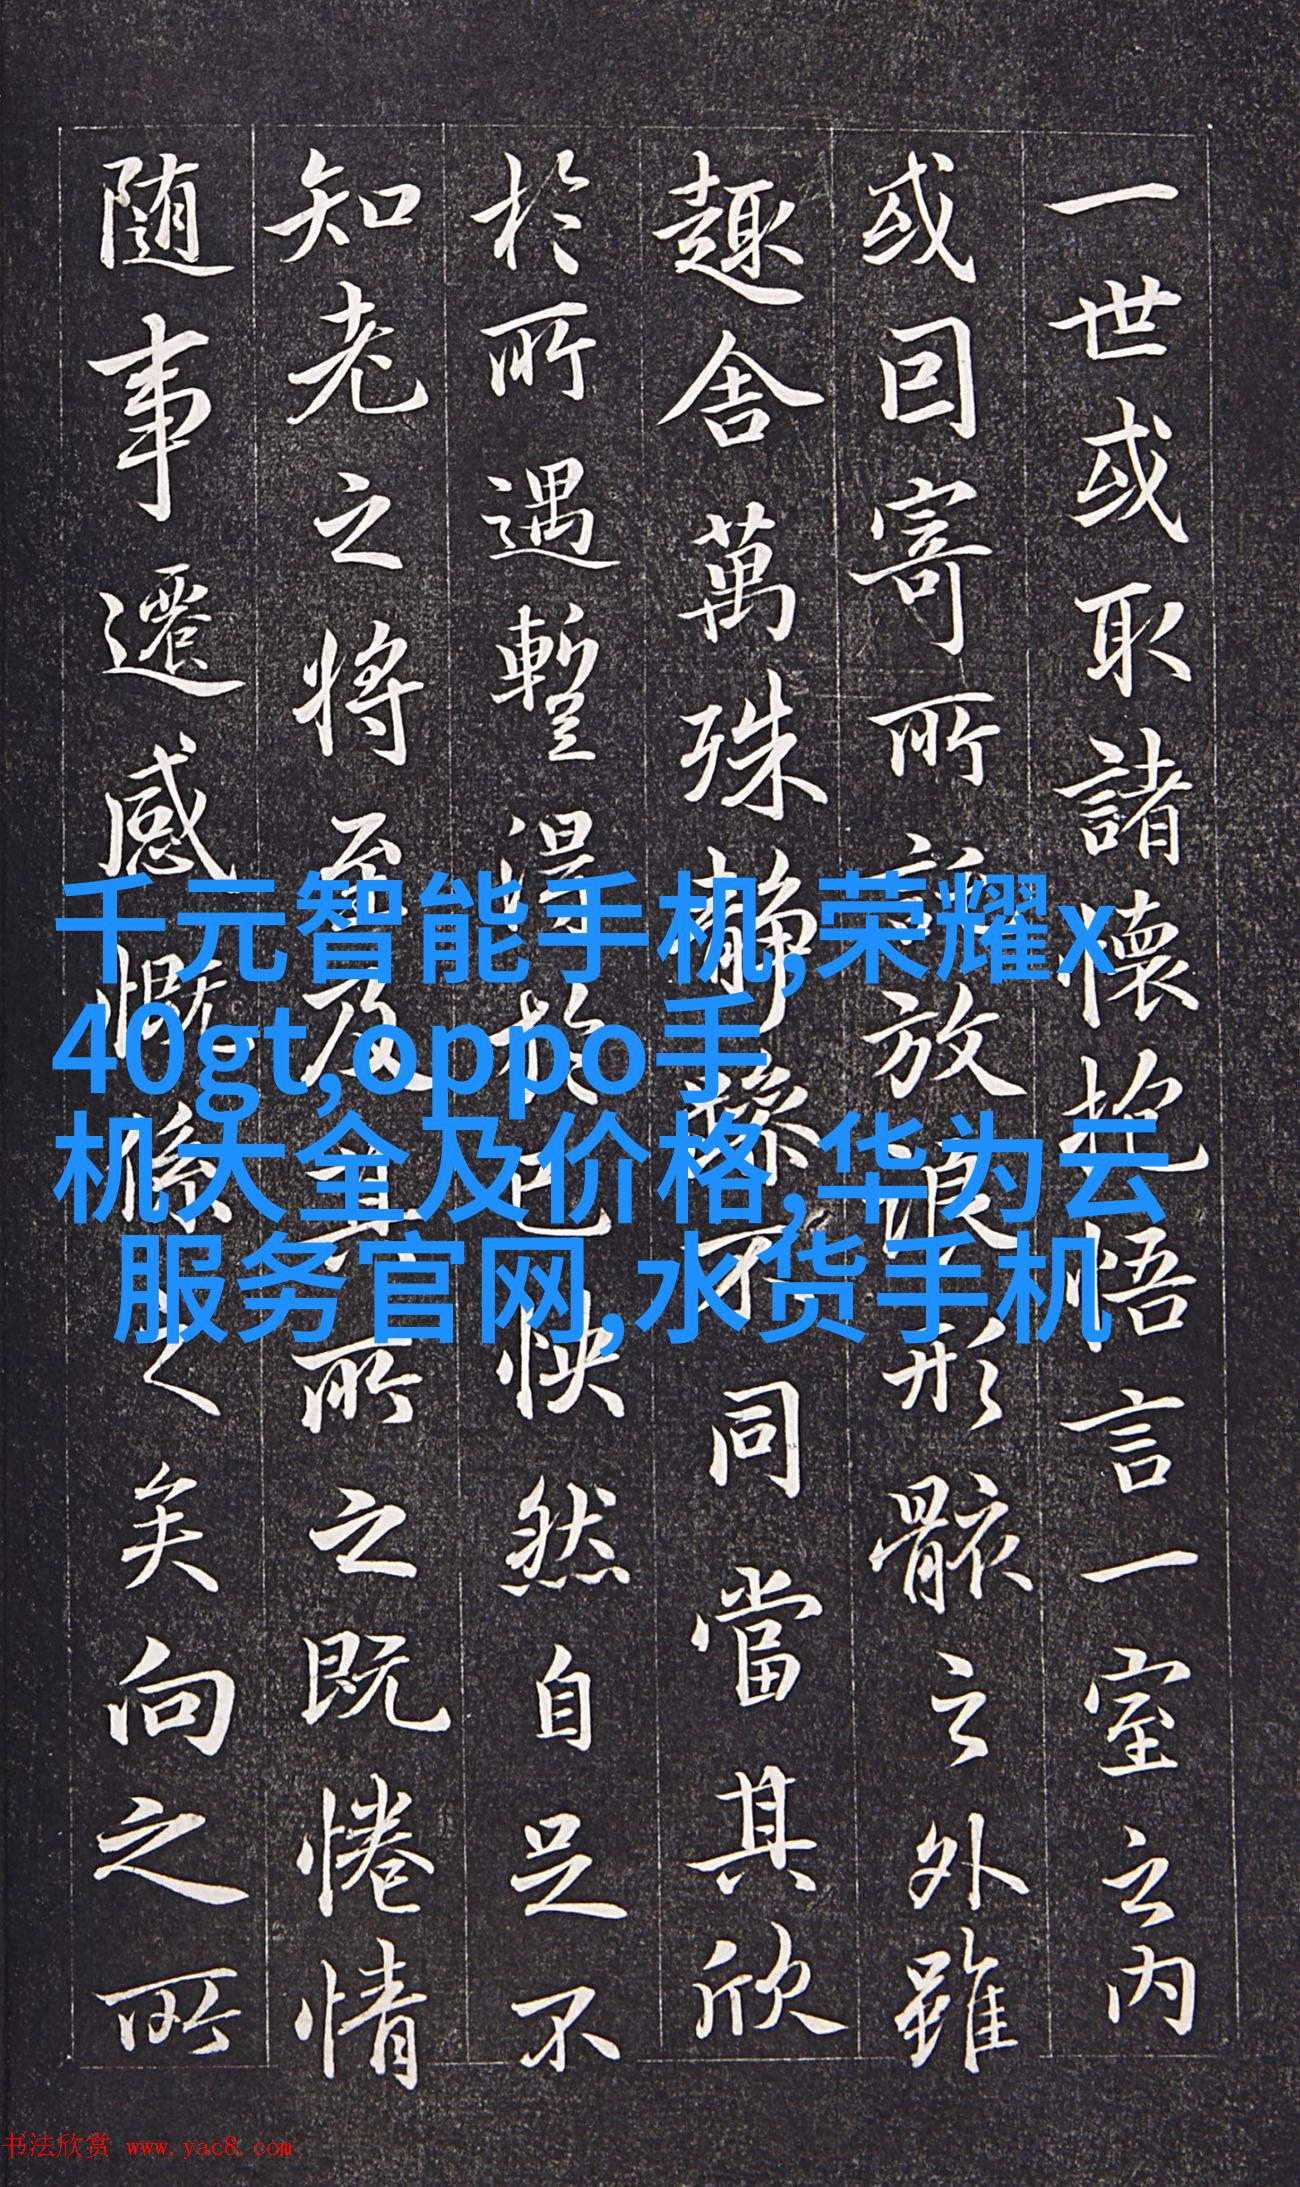 一世或取諸懷抱悟言一室之內
或因寄所託放浪形骸之外雖
趣舍萬殊靜躁不同當其欣
於所遇暫得於己快然自足不
知老之將至及其所之既惓情
随事遷感慨係之矣向之所
千元智能手机,荣耀x
40gt,oppo手
机大全及价格,华为云
服务官网,水货手机
书法欣赏 www.yac8.com